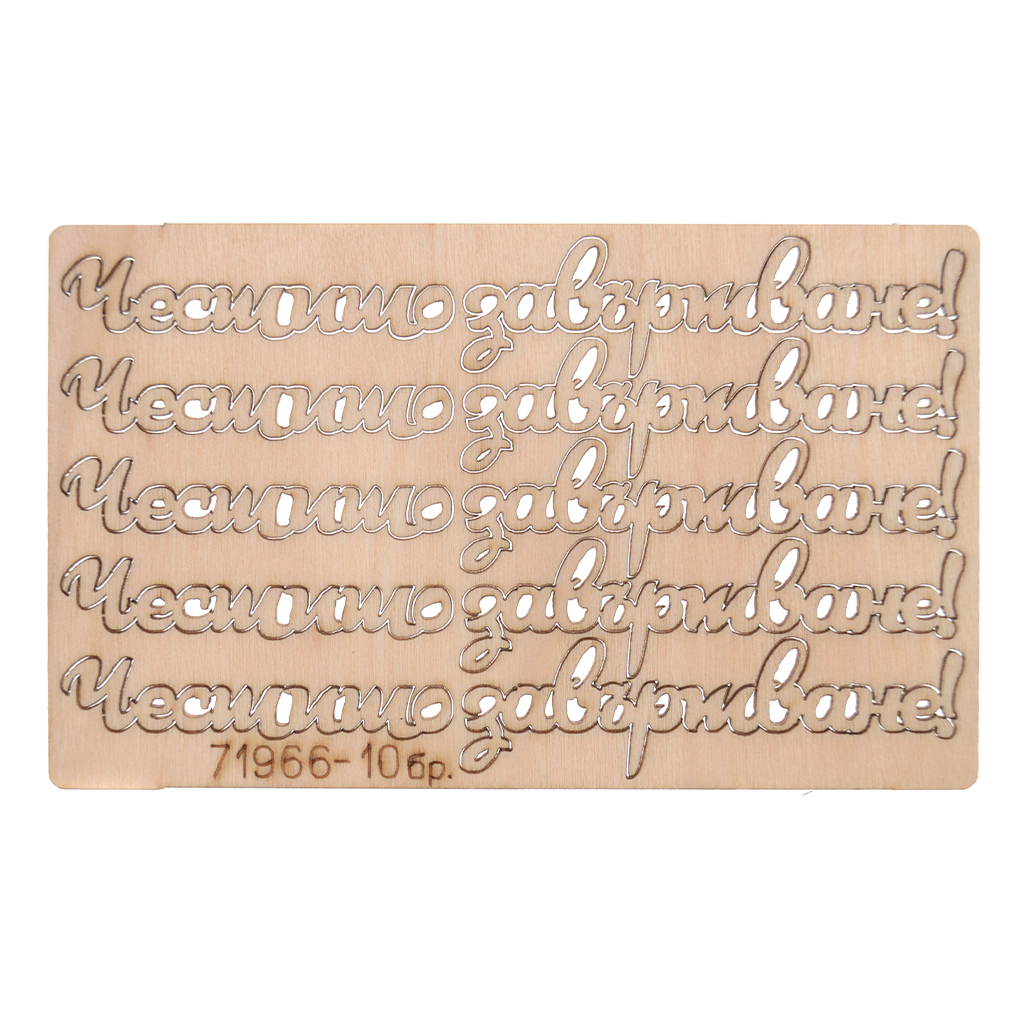 Честито завършване!
Честито завършване!
Честито завършване!
Честито завършване!
Честито завършване!
71966-10бр.